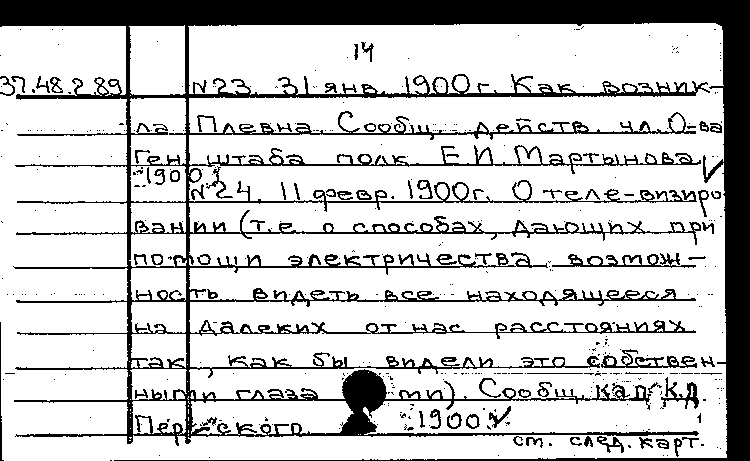 14
37.48.2.89 N23. 31 янв. 1900г. Как возник-
ла Плевна. Сообщ. действ. чл. О-ва
Ген. штаба полк. Е.И. Мартынова
1900
N24. 11 февр. 1900г. О теле-визиро
вании (т.е. о способах, дающих при
помощи электричества возмож-
ность видеть все находящееся
на далеких от нас расстояниях
так, как бы видели это собствен-
ными глазами). Сообщ. кап. К.Д.
Перского. 1900
см. след. карт.